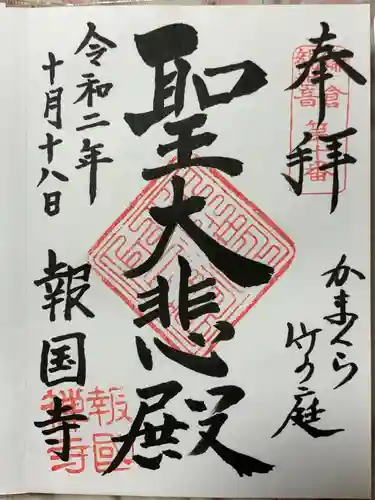 奉拝
鎌倉
観音第十番
かまくら
竹の庭
聖大悲殿
令和二年
十月十八日
報国寺
報國
禅寺